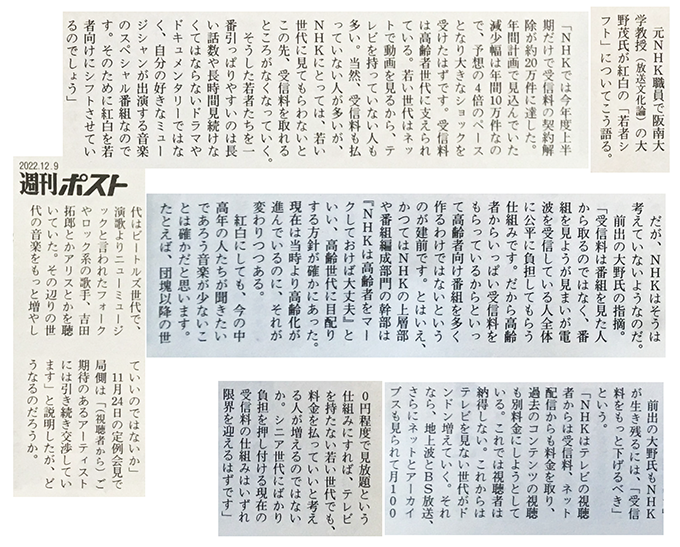 元NHK職員で阪南大
学教授（放送文化論）の大
野茂氏が紅白の「若者シ
フト」についてこう語る。
「NHKでは今年度上半
期だけで受信料の契約解
除が約20万件に達した。
年間計画で見込んでいた
減少幅は年間10万件なの
で、予想の4倍のペース
となり大きなショックを
受けたはずです。受信料
は高齢者世代に支えられ
ている。若い世代はネッ
トで動画を見るから、テ
レビを持っていない人も
多い。当然、受信料も払
っていない人が多いが、
NHKにとっては、若い
世代に見てもらわないと
この先、受信料を取れる
ところがなくなっていく。
そうした若者たちを一
番引っぱりやすいのは長
い話数や長時間見続けな
くてはならないドラマや
ドキュメンタリーではな
く、自分の好きなミュー
ジシャンが出演する音楽
のスペシャル番組なので
す。そのために紅白を若
者向けにシフトさせてい
るのでしょう」
2022.12.9
週刊ポスト
だが、NHKはそうは
考えていないようなのだ。
前出の大野氏の指摘。
「受信料は番組を見た人
から取るのではなく、番
組を見ようが見まいが電
波を受信している人全体
に公平に負担してもらう
仕組みです。だから高齢
者からいっぱい受信料を
もらっているからといっ
て高齢者向け番組を多く
作るわけではないという
のが建前です。とはいえ、
かつてはNHKの上層部
や番組編成部門の幹部は
『NHKは高齢者をマー
クしておけば大丈夫』と
いい、高齢世代に目配り
する方針が確かにあった。
現在は当時より高齢化が
進んでいるのに、それが
変わりつつある。
紅白にしても、今の中
高年の人たちが聞きたい
であろう音楽が少ないこ
とは確かだと思います。
たとえば、団塊以降の世
代はビートルズ世代で、
演歌よりニューミュージ
ックと言われたフォーク
やロック系の歌手、吉田
拓郎とかアリスとかを聴
いていた。その辺りの世
代の音楽をもっと増やし
ていいのではないか」
11月24日の定例会見で
局側は「（視聴者から）ご
期待のあるアーティスト
には引き続き交渉してい
ます」と説明したが、ど
うなるのだろうか。
前出の大野氏もNHK
が生き残るには、「受信
料をもっと下げるべき」
という。
「NHKはテレビの視聴
者からは受信料、ネット
配信からも料金を取り、
過去のコンテンツの視聴
も別料金にしようとして
いる。これでは視聴者は
納得しない。これからは
テレビを見ない世代がド
ンドン増えていく。それ
なら、地上波とBS放送、
さらにネットとアーカイ
ブスも見られて月100
0円程度で見放題という
仕組みにすれば、テレビ
を持たない若い世代でも、
料金を払っていいと考え
る人が増えるのではない
か。シニア世代にばかり
負担を押し付ける現在の
受信料の仕組みはいずれ
限界を迎えるはずです」